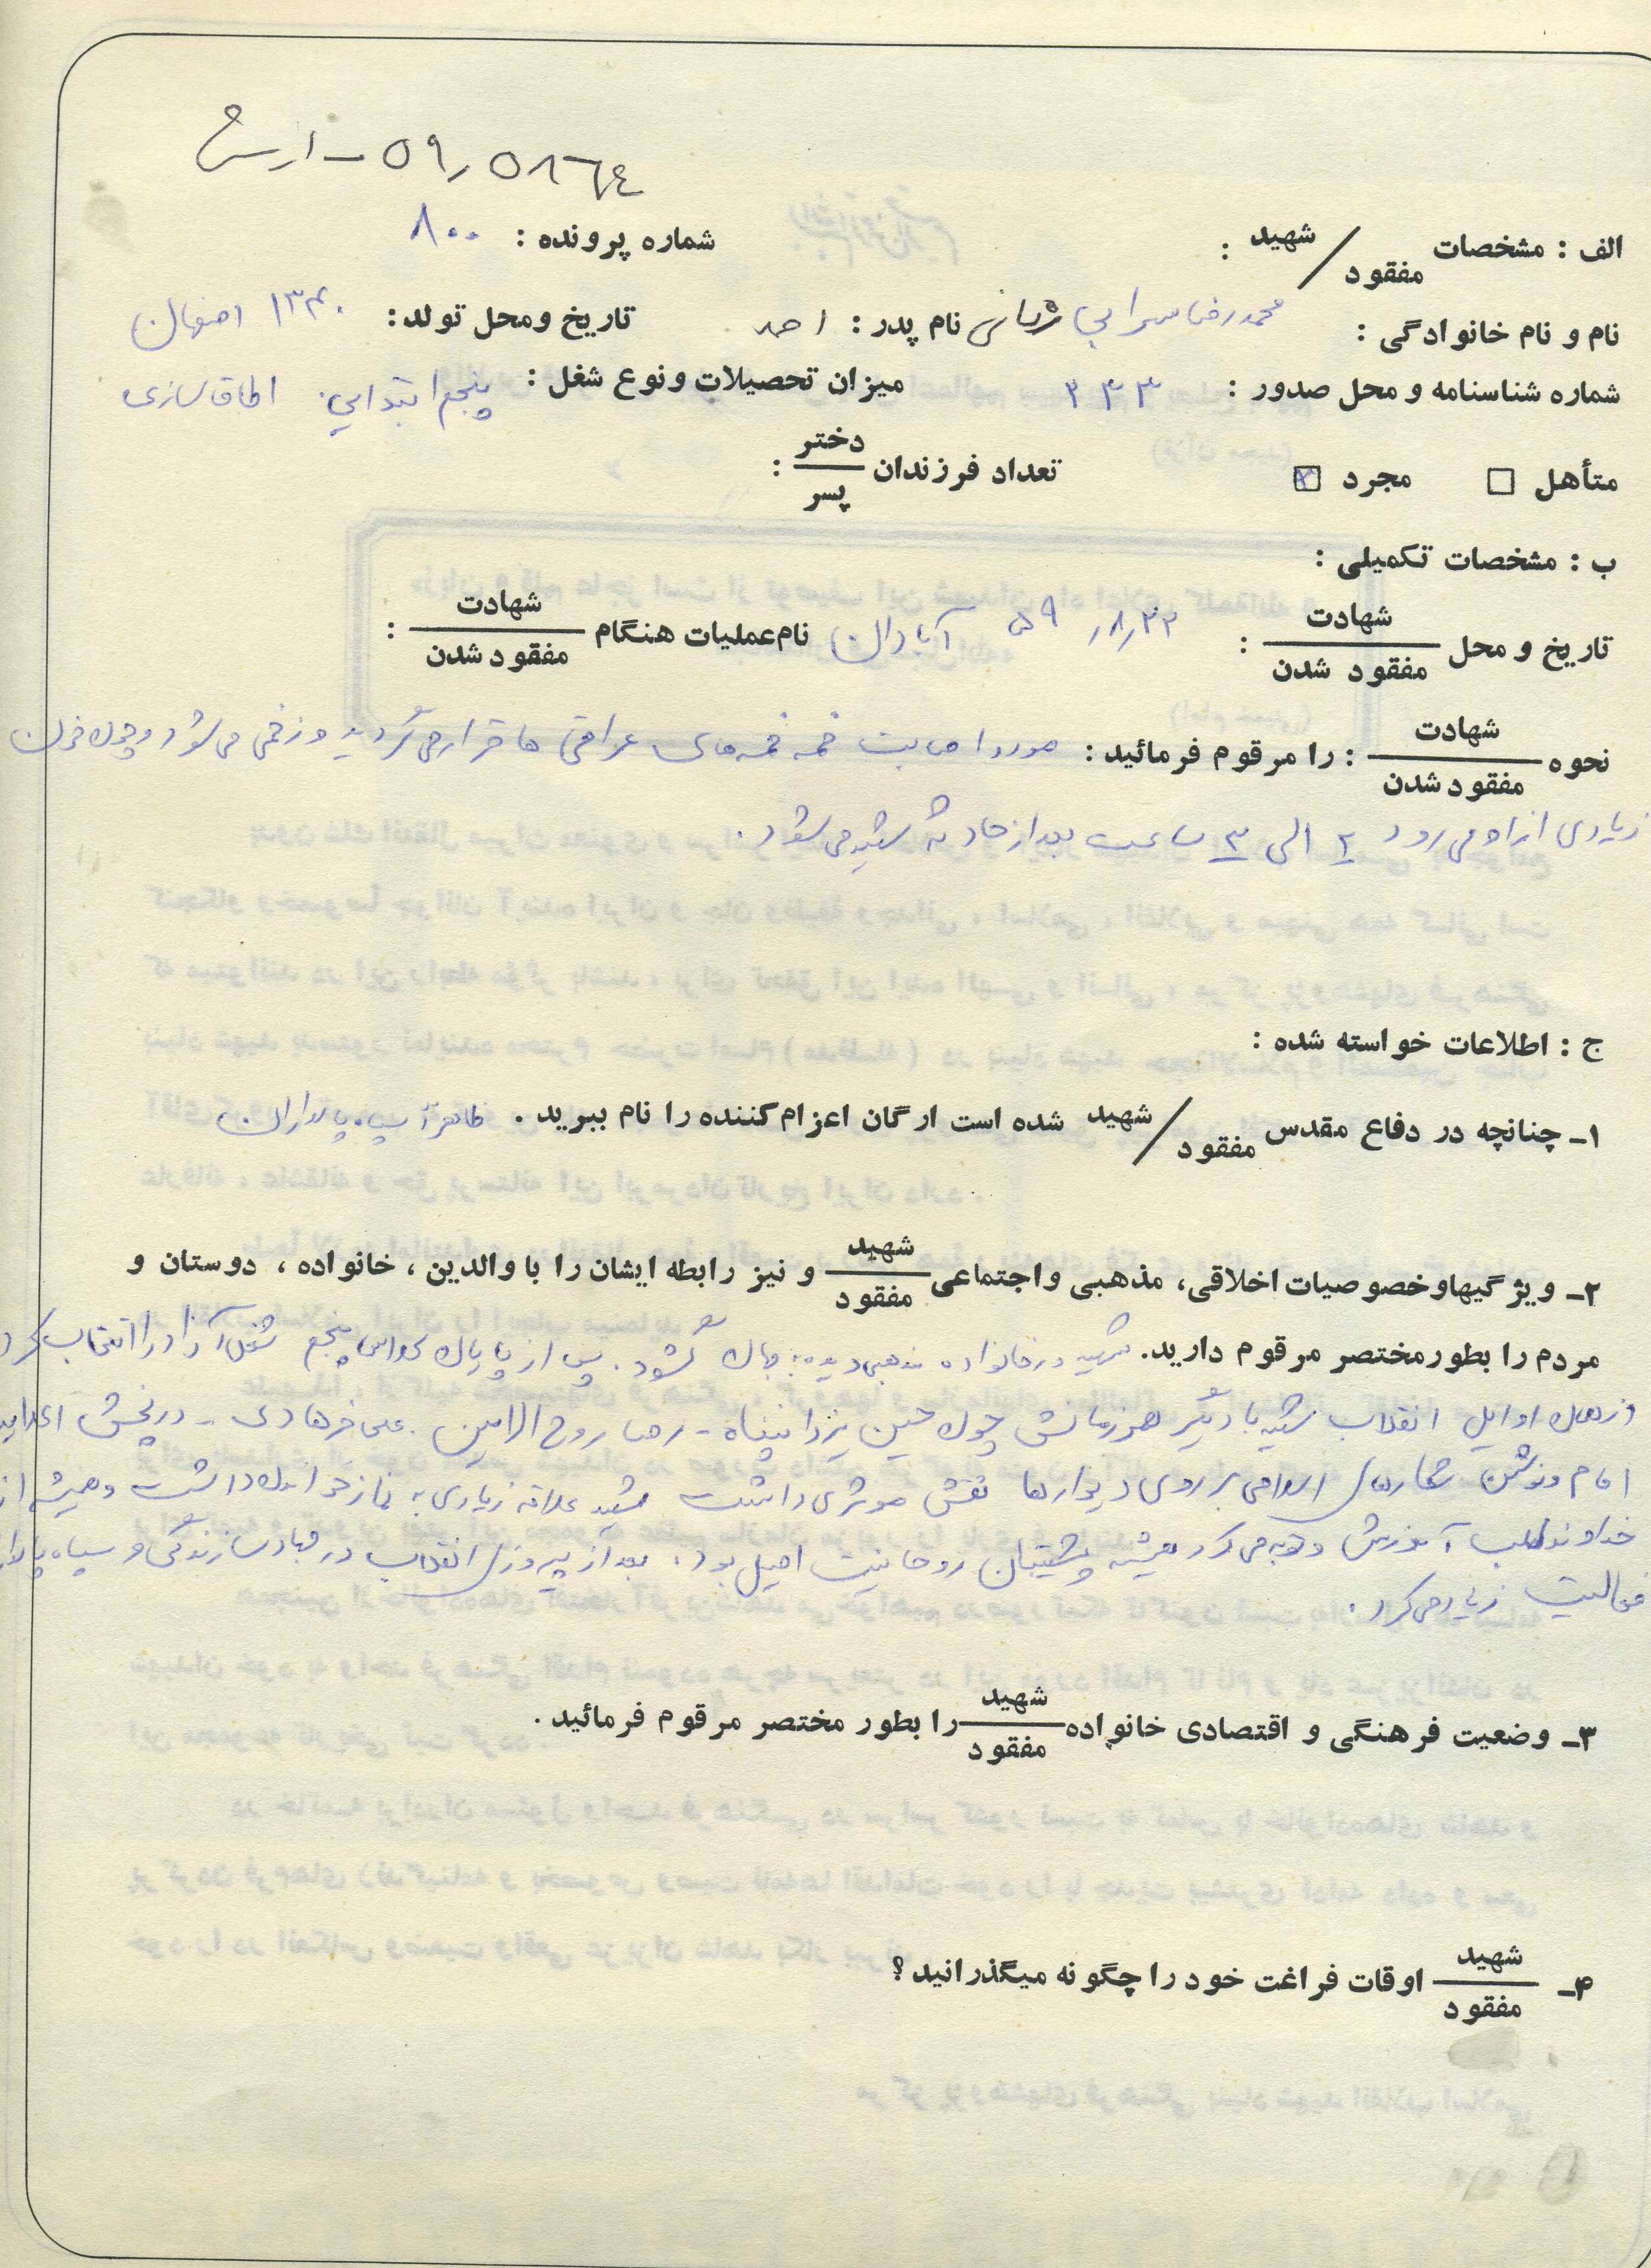 ۵۹٫۵۸۲۶۴ -
الف : مشخصات شهید / مفقود :
شماره پرونده : ۸۰۰
نام و نام خانوادگی : محمدرضا سرابی نام پدر : احمد تاریخ ومحل تولد : ۱۳۴۰ اصفهان
شماره شناسنامه و محل صدور : ۳۴۳ میزان تحصیلات ونوع شغل : پنجم ابتدایی. اطاق سازی
متأهل □ مجرد ☒ تعداد فرزندان دختر / پسر :
ب : مشخصات تکمیلی :
تاریخ و محل شهادت / مفقود شدن : ۵۹٫۸٫۲۲ آبادان نام عملیات هنگام شهادت / مفقود شدن :
نحوه شهادت / مفقود شدن : را مرقوم فرمائید : مورد اصابت خمسه خمسه‌های عراقی ها قرار می گیرد و زخمی می شود و چون خون
زیادی از او می رود ۲ الی ۳ ساعت بعد از حادثه شهید می شود.
ج : اطلاعات خواسته شده :
۱ـ چنانچه در دفاع مقدس شهید / مفقود شده است ارگان اعزام کننده را نام ببرید . ظاهراً سپاه پاسداران
۲ـ ویژگیهاوخصوصیات اخلاقی، مذهبی واجتماعی شهید / مفقود و نیز رابطه ایشان را با والدین ، خانواده ، دوستان و
مردم را بطورمختصر مرقوم دارید. شهید در خانواده مذهبی دیده به جهان گشود. پس از پایان کلاس پنجم شغل آزاد را انتخاب کرد
از همان اوایل انقلاب شهید با دیگر همرزمانش چون حسین یزدانپناه - رضا روح الامین . علی فرهادی - در پخش اعلامیه
امام و نوشتن شعارهای اسلامی بر روی دیوارها نقش موثری داشت شهید علاقه زیادی به نماز خواندن داشت و همیشه از
خداوند طلب آمرزش و توبه می کرد همیشه پشتیبان روحانیت اصیل بود. بعد از پیروزی انقلاب در جهاد سازندگی و سپاه پاسداران
فعالیت زیاد می کرد.
۳ـ وضعیت فرهنگی و اقتصادی خانواده شهید / مفقود را بطور مختصر مرقوم فرمائید .
۴ـ شهید / مفقود اوقات فراغت خود را چگونه میگذرانید ؟